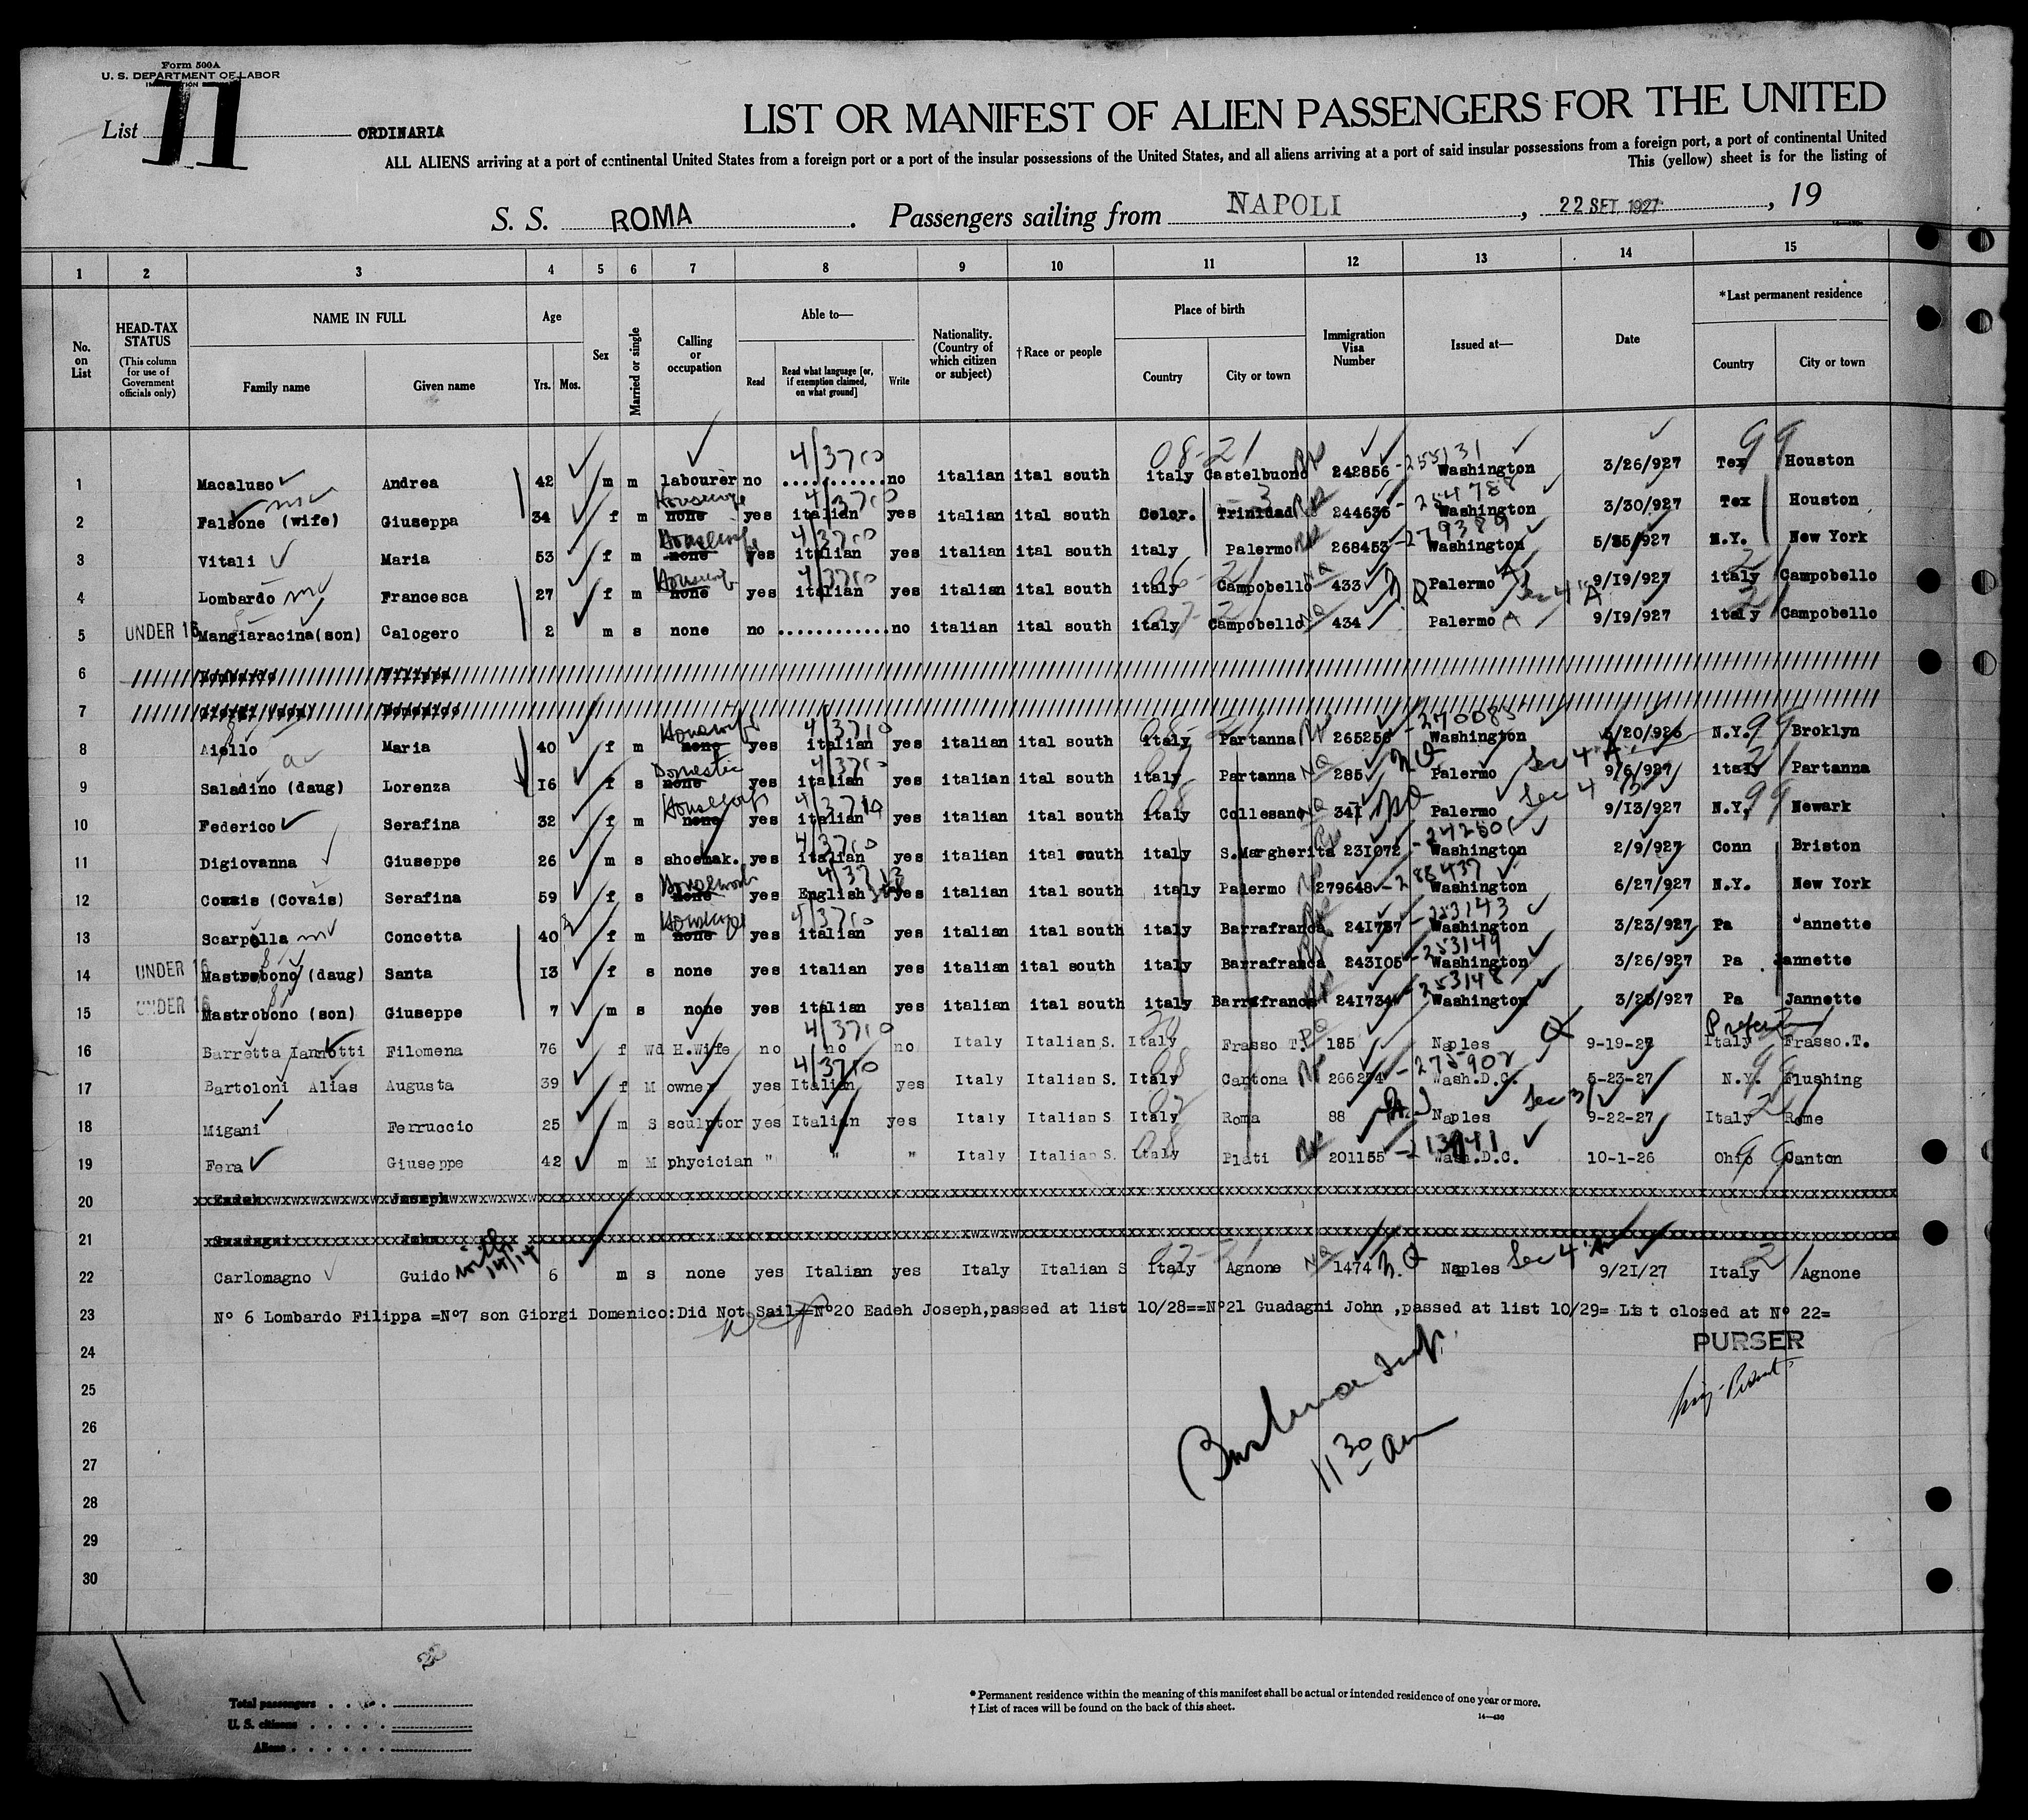 Form 500A
U. S. DEPARTMENT OF LABOR
List 11 ORDINARIA
LIST OR MANIFEST OF ALIEN PASSENGERS FOR THE UNITED
ALL ALIENS arriving at a port of continental United States from a foreign port or a port of the insular possessions of the United States, and all aliens arriving at a port of said insular possessions from a foreign port, a port of continental United
This (yellow) sheet is for the listing of
S. S. ROMA. Passengers sailing from NAPOLI, 22 SET. 1927, 19
1 2 3 4 5 6 7 8 9 10 11 12 13 14 15
No. on List
HEAD-TAX STATUS (This column for use of Government officials only)
NAME IN FULL Family name Given name
Age Yrs. Mos.
Sex
Married or single
Calling or occupation
Able to— Read Read what language [or, if exemption claimed, on what ground] Write
Nationality. (Country of which citizen or subject)
†Race or people
Place of birth Country City or town
Immigration Visa Number
Issued at—
Date
*Last permanent residence Country City or town
1 Macaluso Andrea 42 m m labourer no 4/3710 ............no italian ital south 08-21 italy Castelbuono 242856 - 255131 Washington 3/26/927 Tex 99 Houston
2 Falsone (wife) Giuseppa 34 f m none Housewife yes italian 4/3710 yes italian ital south Color. Trinidad 244636 - 254788 Washington 3/30/927 Tex Houston
3 Vitali Maria 53 f m none Housewife yes italian 4/3710 yes italian ital south italy Palermo 268453 - 279389 Washington N.Y. New York
4 Lombardo Francesca 27 f m none Housewife yes italian 4/3710 yes italian ital south italy Campobello NQ 433 Palermo Sec 4 A 9/19/927 italy Campobello
5 UNDER 16 Mangiaracina(son) Calogero 2 m s none no ............no italian ital south italy Campobello NQ 434 Palermo 9/19/927 italy Campobello
6 Lombardo Filippa
7
8 Aiello Maria 40 f m none Housewife yes italian 4/3710 yes italian ital south italy Partanna 265256 - 270085 Washington 5/20/926 N.Y. 99 Broklyn
9 Saladino (daug) Lorenza 16 f s none Domestic yes italian 4/3710 yes italian ital south italy Partanna NQ 285 Palermo Sec 4 A 9/6/927 italy Partanna
10 Federico Serafina 32 f m none yes italian yes italian ital south italy Collesano NQ 341 Palermo Sec 4 9/13/927 N.Y. 99 Newark
11 Digiovanna Giuseppe 26 m s shoemak. yes italian 4/3710 yes italian ital south italy S.Margherita 231072 - Washington 2/9/927 Conn Briston
12 (Covais) Serafina 59 f s none yes English yes italian ital south italy Palermo 279648 - 288437 Washington 6/27/927 N.Y. New York
13 Scarpella Concetta 40 f m none Housewife yes italian 4/3710 yes italian ital south italy Barrafranca 241737 - 253143 Washington 3/23/927 Pa Jannette
14 UNDER 16 Mastrobono (daug) Santa 13 f s none yes italian yes italian ital south italy Barrafranca 243105 - 253149 Washington 3/26/927 Pa Jannette
15 UNDER 16 Mastrobono (son) Giuseppe 7 m s none yes italian yes italian ital south italy Barrafranca 241734 - 253148 Washington 3/23/927 Pa Jannette
16 Barretta Iannotti Filomena 76 f Wd H.Wife no no 4/3710 no Italy Italian S. Italy Frasso T. 185 Naples 9-19-27 Italy Frasso.T.
17 Bartoloni Alias Augusta 39 f M owner yes Italian 4/3710 yes Italy Italian S. Italy Cortona 266274 - 275902 Wash.D.C. 5-23-27 N.Y. 99 Flushing
18 Migani Ferruccio 25 m S sculptor yes Italian yes Italy Italian S Italy Roma 88 Naples Sec 3/ 9-22-27 Italy Rome
19 Fera Giuseppe 42 m M phycician " " " Italy Italian S. Italy Plati 201155 - Wash.D.C. 10-1-26 Ohio 99 Canton
20 Eadeh Joseph
21 Guadagni John
22 Carlomagno Guido 6 m s none yes Italian yes Italy Italian S Italy Agnone NQ 1474 Naples Sec 4 9/21/27 Italy Agnone
23 Nº 6 Lombardo Filippa =Nº7 son Giorgi Domenico:Did Not Sail==Nº20 Eadeh Joseph,passed at list 10/28==Nº21 Guadagni John ,passed at list 10/29= List closed at Nº 22=
24 PURSER
25
26
27 11 30 am
28
29
30
11
Total passengers
U. S. citizens
Aliens
*Permanent residence within the meaning of this manifest shall be actual or intended residence of one year or more.
†List of races will be found on the back of this sheet.
14—430